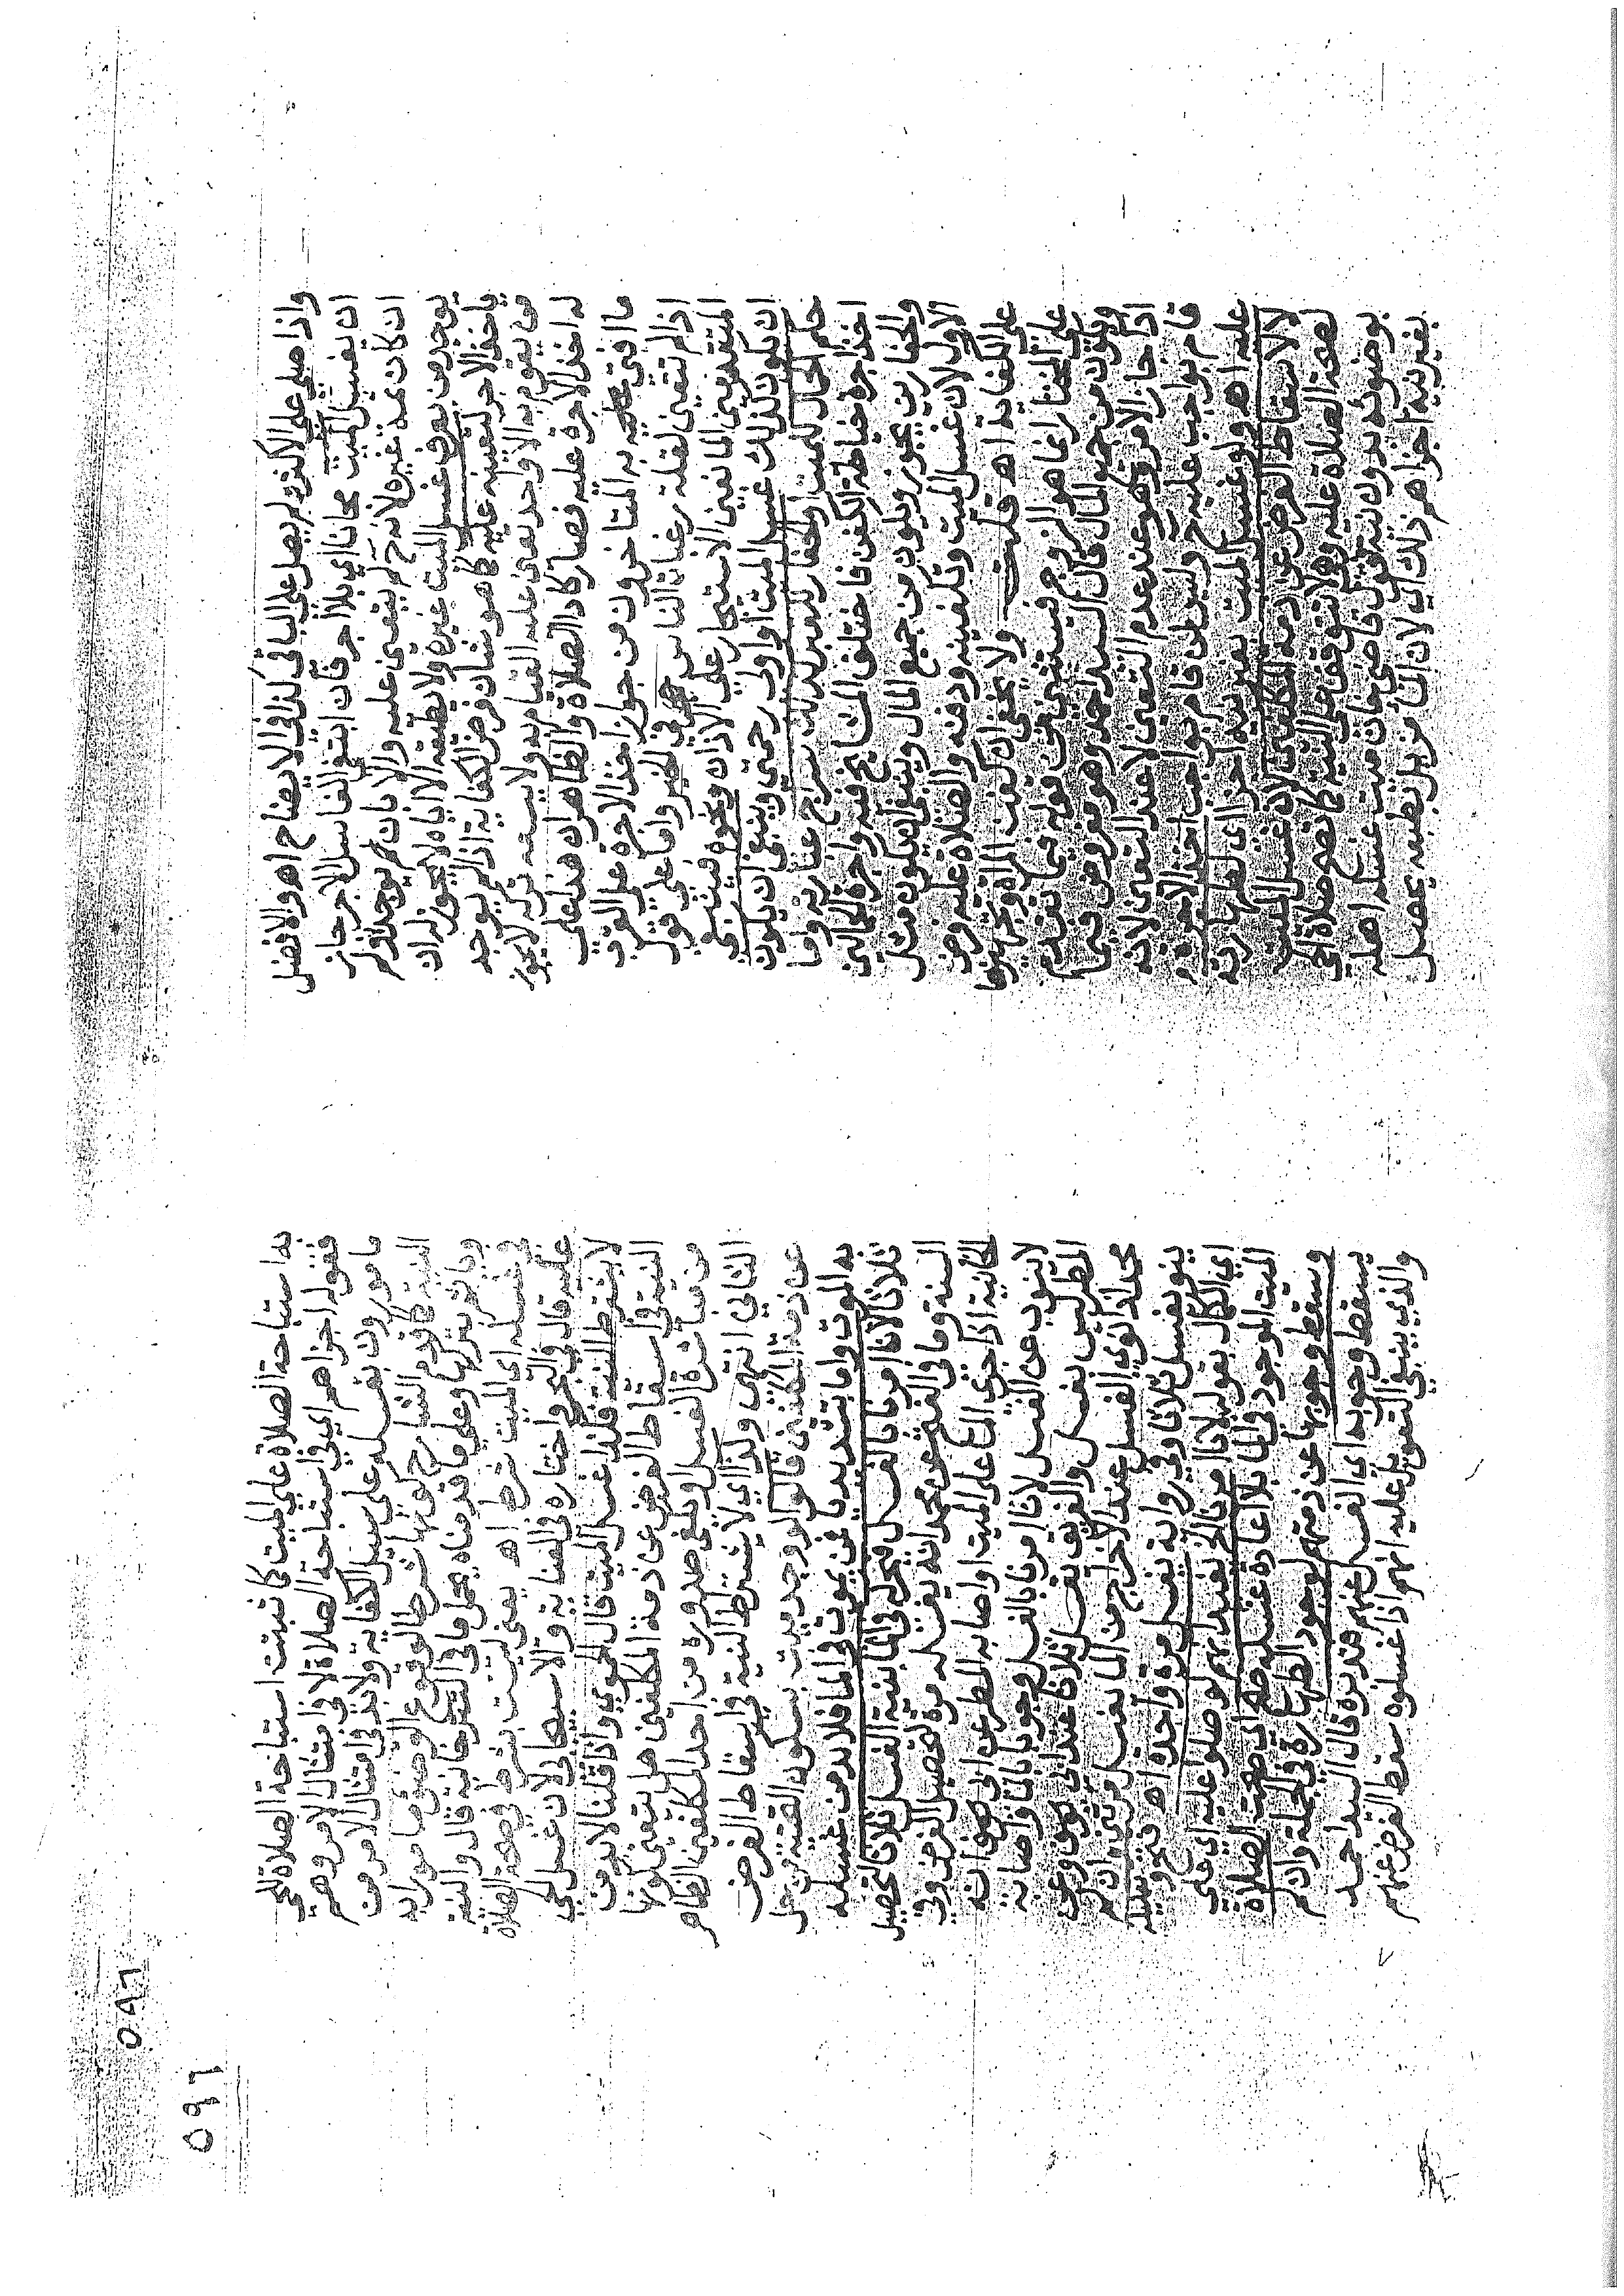 واذا صلي على الاكثر لم يصل على الباقي كذا في الايضاح اهـ والافضل
ان يغسل الميت مجانا اي بلا اجر فان ابتغى الغاسل الاجر جاز
ان كان ثمة غيره لانه ح لم يتعين عليه والا بان لم يوجد او لم
يوجد من يعرف غسل الميت غيره ولا يطيقه الا اياه لا يجوز له ان
ياخذ الاجر لتعينه عليه كما هو شان فرض الكفاية اذا لم يوجد
من يقوم به الا واحد تعين عليه القيام به ولا يسعه تركه لا يجوز
له اخذ الاجرة عليه فصار كاداء الصلاة والظاهر ان هذا على
ما افتى به المتاخرون من جواز اخذ الاجرة على القرب
اذا لم تتعين لقلة رغبات الناس في الخير واما على قول
المتقدمين المانعين الاستيجار على الاذان ونحوه فينبغي
ان يكون كذلك غسل الميت او اولى رحمتي وينبغي ان يكون
حكم الحمال للميت والحفار للقبر كذلك سراج عبارته واما
اخذ اجرة خياطة الكفن فاختلف المشايخ فيه واجرة الحمالين
والحفارين يجوز ويكون من جميع المال وينبغي ان يكون مثل
الاول لان غسل الميت وتكفينه ودفنه والصلاة عليه فرض
على الكفاية اهـ قلت ولا يخفى ان كفن المراة وتجهيزها
على المختار انما هو الزوج فيستثنى من قوله فيما تقدم
ويكون من جميع المال قال السيد احمد وهو مفروض فيما
اذا حاز الامر وهو عند عدم التعين لا عند التعين لانه
قام بواجب عليه ح وليس لمن قام بواجب اخذ الاجرة
عليه اهـ ولو غسل الميت بغير نية اجزا اي لطهارته
لا لاسقاط الفرض عن ذمة المكلفين لان غسل الميت
لصحة الصلاة عليه وهو لا يتوقف على النية كما تصح صلاة الحي
بوضوئه بدون نية قول قاضي خان ميت غسله اهله
بغير نية اجزاهم ذلك اي لان المزيل بطبعه يحصل
به استباحة الصلاة على الميت كما تثبت استباحة الصلاة للحي
فقوله اجزاهم اي في استباحة الصلاة لا في امتثال الامر وهم
مامورون بغسله على سبيل الكفاية ولا بد في امتثال الامر من
النية كما قدم الشارح كونها شرطا لوقوع الوضوء مامورا به
وياثم بتركها وعلى ما قدمناه يحمل ما في التتر خانية قال والنية
في غسله اي الميت شرط اهـ يعني ليست بشرط في صحة الصلاة
عليه قال في البحر واختاره في الغناية والاسبيجابي لان غسل الحي
لا يشترط له النية فكذا غسل الميت قال الحموي واذا قلنا لا بد من
النية في اسقاط الفرض عن ذمة المكلفين هل تتعين كونها
من مباشرة الغسل او يكفي صدوره من احد المكلفين الظاهر
الثاني انتهى ولذا اي لاشتراط النية في اسقاط الفرض
عن ذمة المكلفين قالوا لو وجد ميت بسكون التحتية من حل
به الموت واما بتشديدها فمن يموت في الماء فلا بد من غسله
ثلاثا لانا امرنا بالغسل فيحركه في الماء بنية الغسل ثلاثا لتحصيل
السنة وما في الفتح عن محمد انه يغسله مرة لتحصيل الفرض وفي
الخانية اذا جرى الماء على الميت او اصابه المطر عن ابي يوسف انه
لا ينوب عن الغسل لانا امرنا بالغسل وجريان الماء واصابة
المطر ليس بغسل والغريق يغسل ثلاثا عند ابي يوسف وعن
محمد اذا نوى الغسل عند الاخراج من الماء يغسل مرتين وان لم
ينو يغسل ثلاثا وفي رواية يغسل مرة واحدة اهـ فتح وتعليله
اي الكمال بقوله لانا امرنا الخ يفيد انهم لو صلوا عليه اي على
الميت الموجود في الماء بلا اعادة غسله صح اي صحت الصلاة
وسقط وجوبها عن ذمتهم لوجود الطهارة في الجملة وان لم
يسقط وجوبه اي الغسل عنهم فتدبره قال السيد احمد
والذي ينبغي التعويل عليه انهم اذا غسلوه سقط الفرض عنهم
٥٩٦
٥٩٦